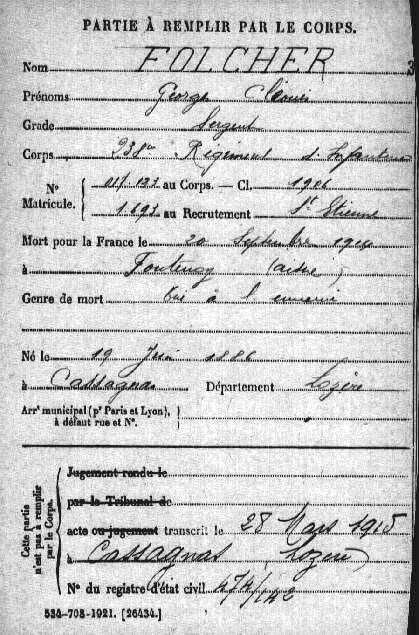 PARTIE À REMPLIR PAR LE CORPS.
Nom FOLCHER
Prénoms Georges
Grade Sergent
Corps 238e Régiment d'Infanterie
N° Matricule.
017.123 au Corps. — Cl. 1906
1.693 au Recrutement St Etienne
Mort pour la France le 20 Septembre 1914
à Fontenoy (Aisne)
Genre de mort tué à l'ennemi
Né le 19 Juin 1886
à Cassagnas Département Lozère
Arrt municipal (pr Paris et Lyon),
à défaut rue et N°.
Cette partie
n'est pas à remplir
par le Corps.
Jugement rendu le
par le Tribunal de
acte ou jugement transcrit le 28 Mars 1915
à Cassagnas (Lozère)
N° du registre d'état civil 474/142
534-708-1921. [26434.]